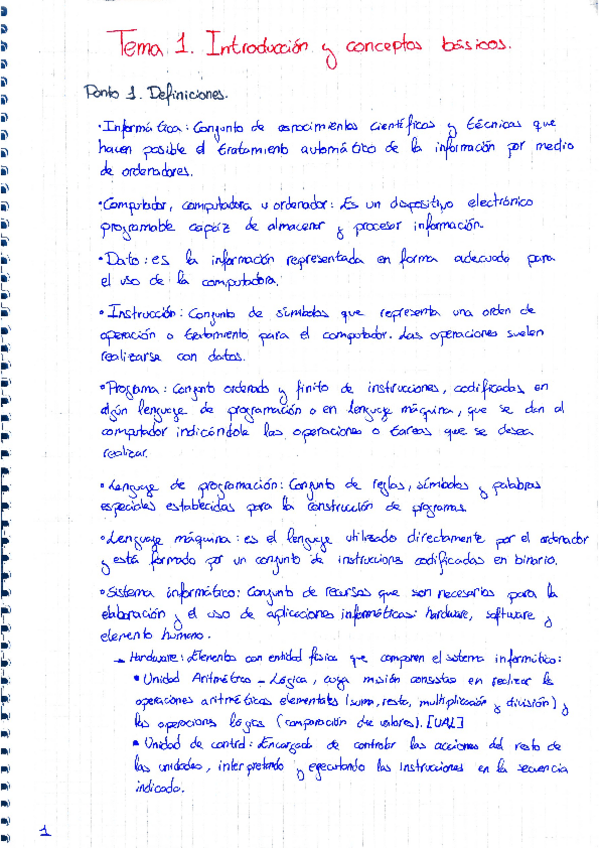 Tema 1. Introducción y conceptos básicos.
Punto 1. Definiciones.
• Informática: Conjunto de conocimientos científicos y técnicas que
hacen posible el tratamiento automático de la información por medio
de ordenadores.
• Computador, computadora u ordenador: Es un dispositivo electrónico
programable capaz de almacenar y procesar información.
• Dato: es la información representada en forma adecuada para
el uso de la computadora.
• Instrucción: Conjunto de símbolos que representa una orden de
operación o tratamiento para el computador. Las operaciones suelen
realizarse con datos.
• Programa: Conjunto ordenado y finito de instrucciones, codificadas en
algún lenguaje de programación o en lenguaje máquina, que se dan al
computador indicándole las operaciones o tareas que se desea
realizar.
• Lenguaje de programación: Conjunto de reglas, símbolos y palabras
especiales establecidas para la construcción de programas.
• Lenguaje máquina: es el lenguaje utilizado directamente por el ordenador
y está formado por un conjunto de instrucciones codificadas en binario.
• Sistema informático: Conjunto de recursos que son necesarios para la
elaboración y el uso de aplicaciones informáticas: hardware, software y
elemento humano.
→ Hardware: Elementos con entidad física que componen el sistema informático:
• Unidad Aritmético - Lógica, cuya misión consiste en realizar las
operaciones aritméticas elementales (suma, resta, multiplicación y división) y
las operaciones lógicas (comparación de valores). [UAL]
• Unidad de control: Encargada de controlar las acciones del resto de
las unidades, interpretando y ejecutando las instrucciones en la secuencia
indicada.
1